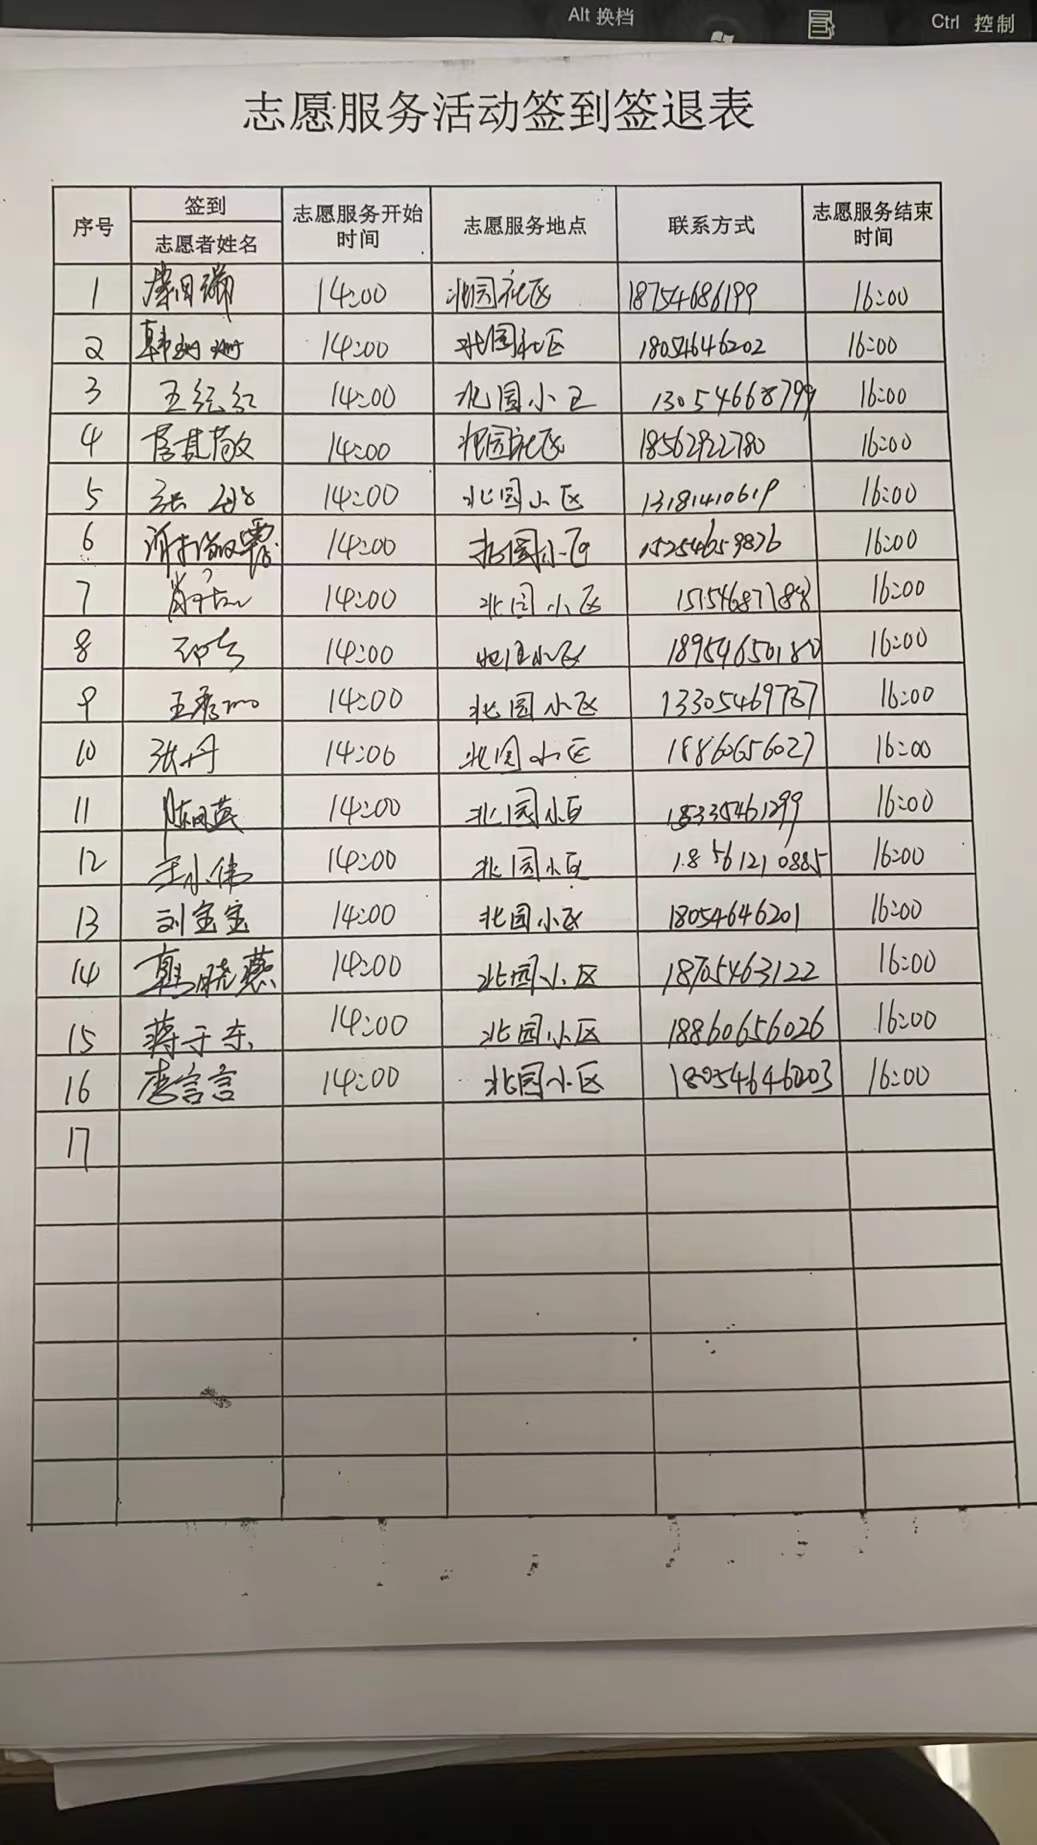 Alt 换档
Ctrl 控制
志愿服务活动签到签退表
序号 签到 志愿者姓名 志愿服务开始时间 志愿服务地点 联系方式 志愿服务结束时间
1 14:00 北园社区 18754686199 16:00
2 韩姗姗 14:00 北园社区 18054646202 16:00
3 王红红 14:00 北园小区 13054668799 16:00
4 14:00 北园社区 18562922780 16:00
5 14:00 北园小区 13181410619 16:00
6 14:00 北园小区 15254659876 16:00
7 14:00 北园小区 16:00
8 14:00 北园小区 16:00
9 14:00 北园小区 13305469787 16:00
10 张丹 14:00 北园小区 18860656027 16:00
11 陈凤英 14:00 北园小区 16:00
12 王小伟 14:00 北园小区 18561210885 16:00
13 刘宝宝 14:00 北园小区 18054646201 16:00
14 韩晓燕 14:00 北园小区 18705463122 16:00
15 蒋于东 14:00 北园小区 18860656026 16:00
16 唐言言 14:00 北园小区 18054646203 16:00
17